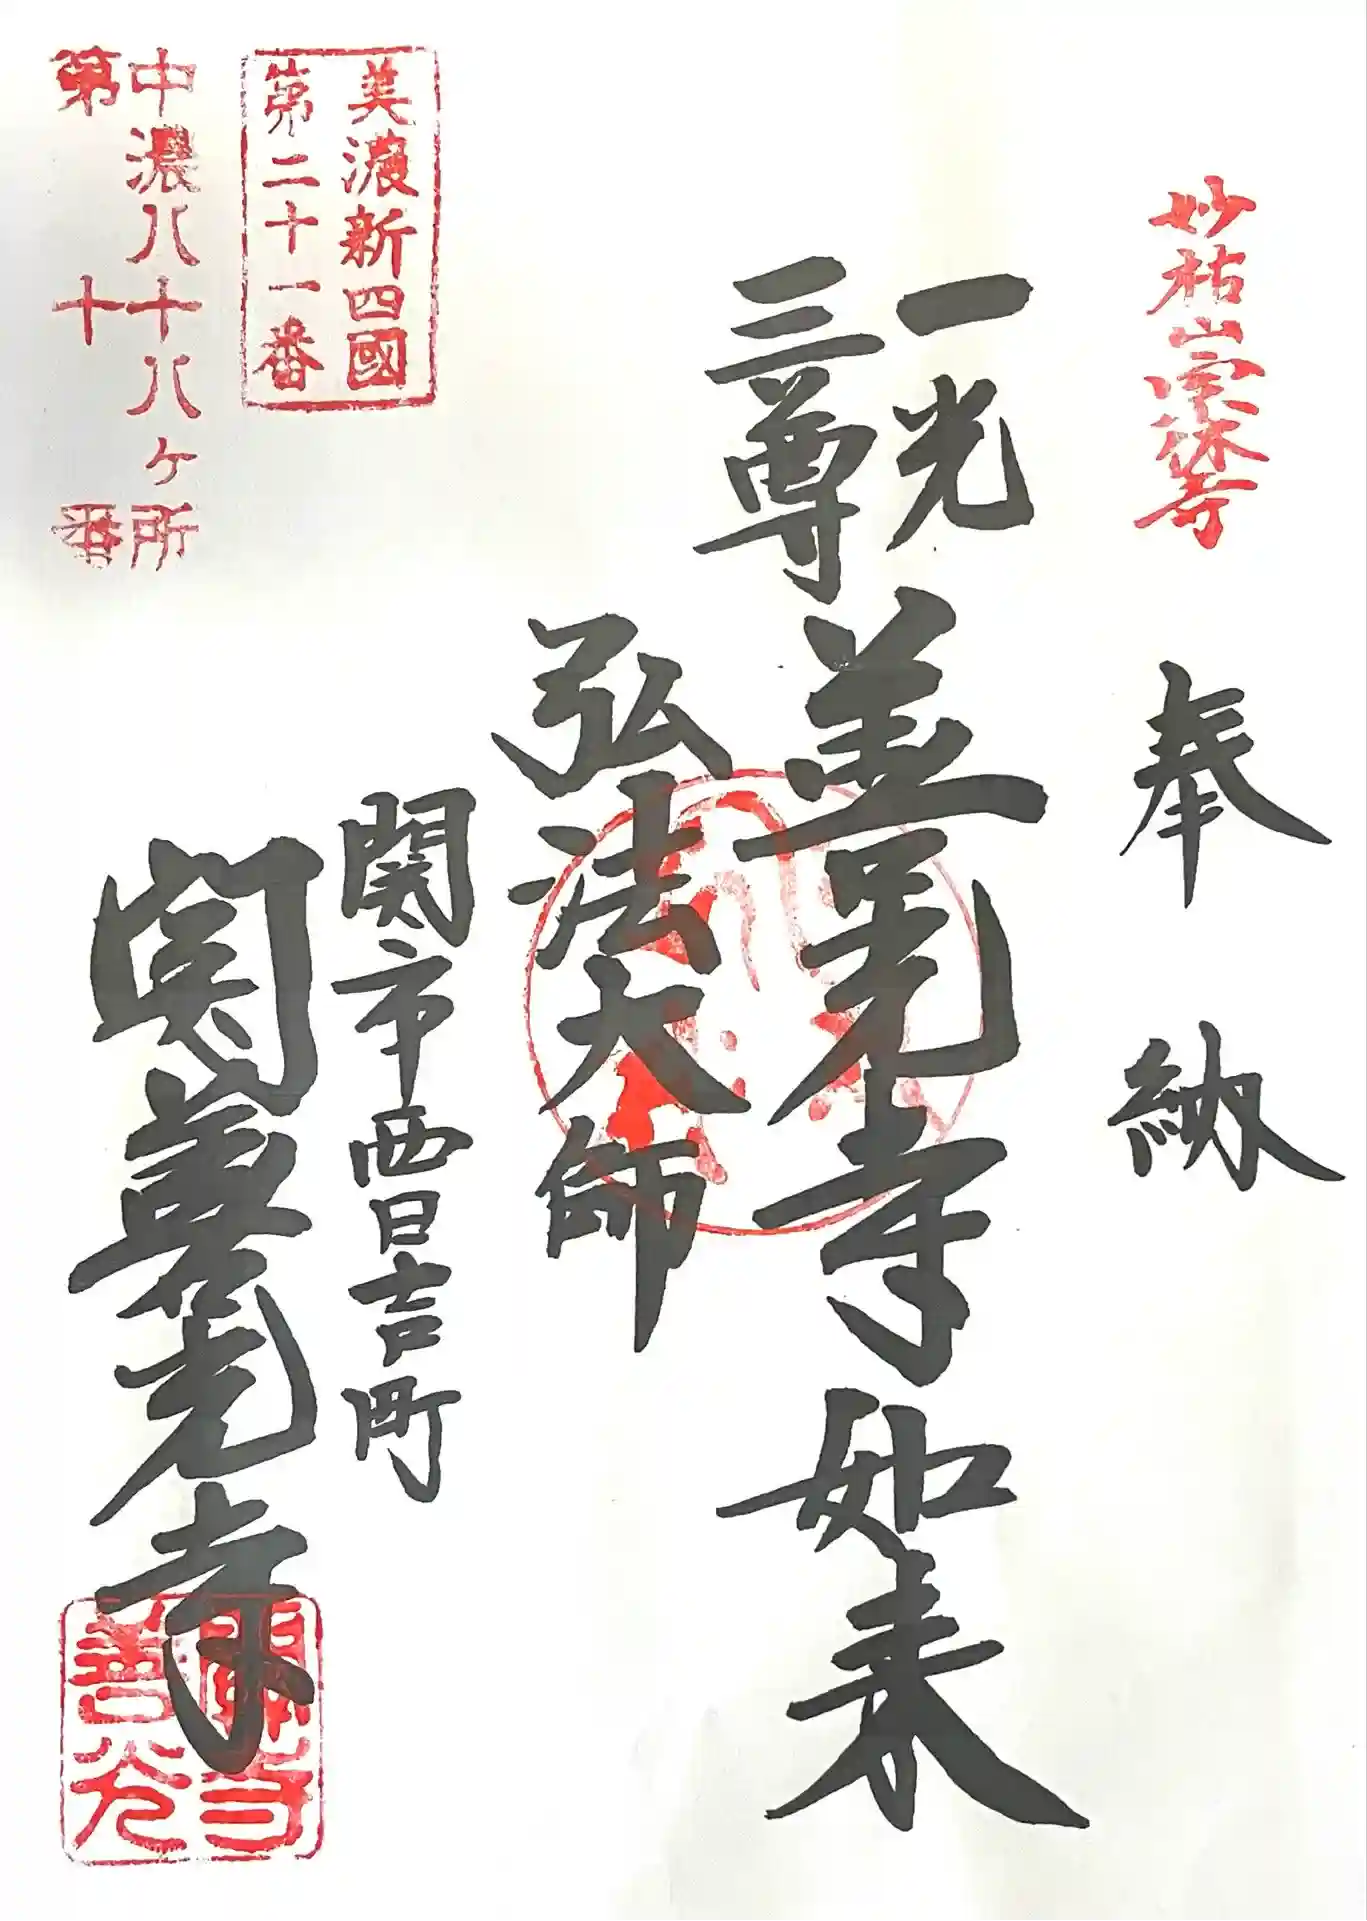 妙祐山宗休寺
奉納
一光
三尊
善光寺如来
弘法大師
関市西日吉町
関善光寺
美濃新四國
第二十一番
中濃八十八ヶ所
第十番
善光